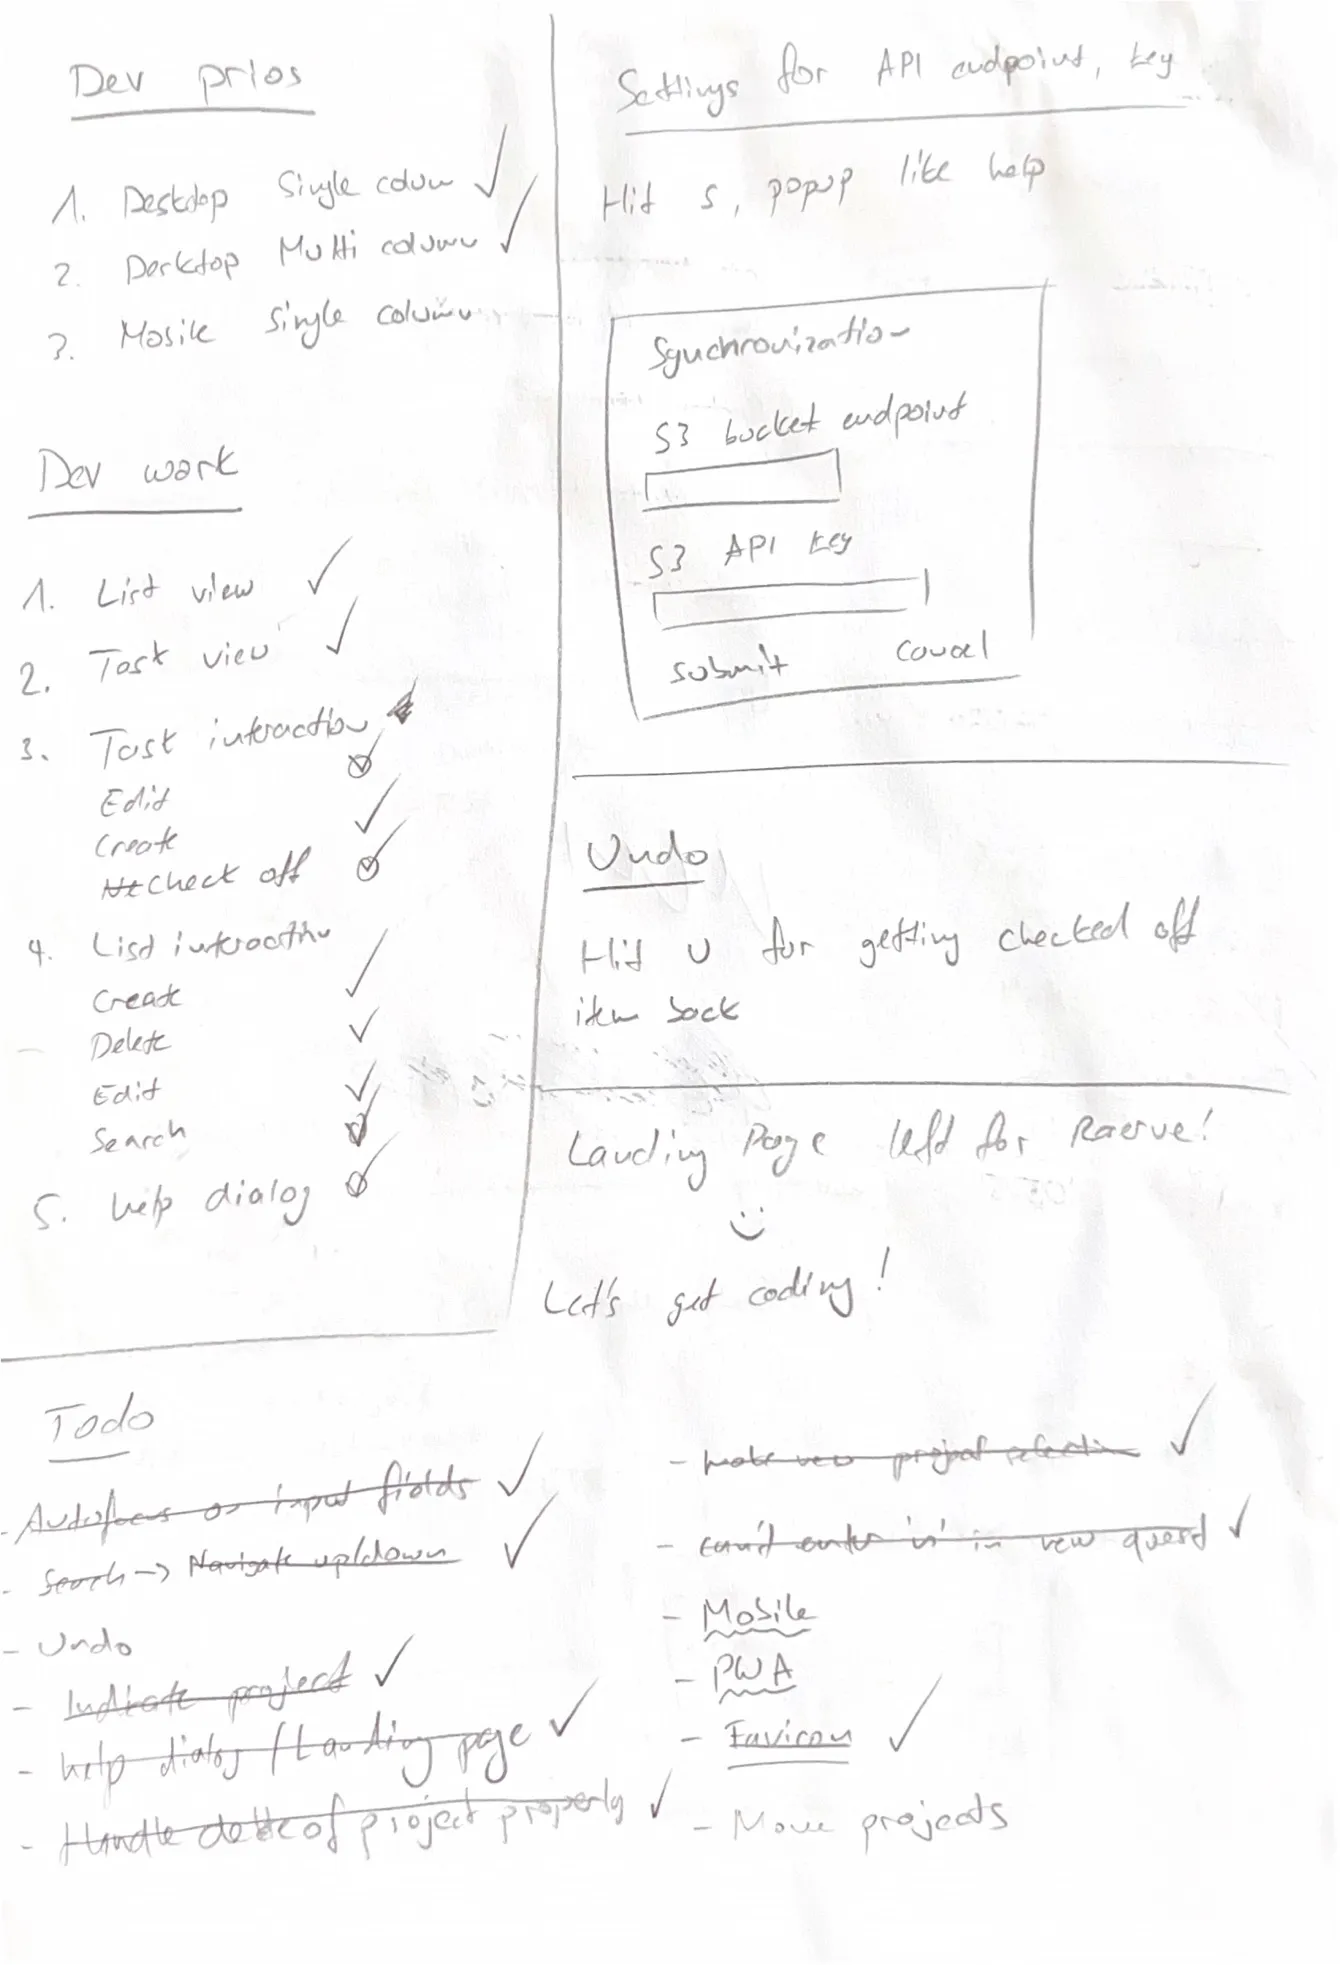 Dev prios
1. Desktop Single colum ✓
2. Desktop Multi column ✓
3. Mobile Single column
Dev work
1. List view ✓
2. Task view ✓
3. Task interaction
Edit ✓
Create ✓
Check off ✓
4. List interaction
Create ✓
Delete ✓
Edit ✓
Search ✓
5. help dialog ✓
Settings for API endpoint, key
Hit s, popup like help
Synchronization
S3 bucket endpoint
S3 API key
Submit Cancel
Undo
Hit U for getting checked off
item back
Landing Page left for
Let's get coding!
Todo
- Autofocus on input fields ✓
- Search -> Navigate up/down ✓
- Undo
- Indicate project ✓
- help dialog / Landing page ✓
- Handle delete of project properly ✓
- make new project selection ✓
- can't enter 'n' in new quest ✓
- Mobile
- PWA
- Favicon ✓
- Move projects